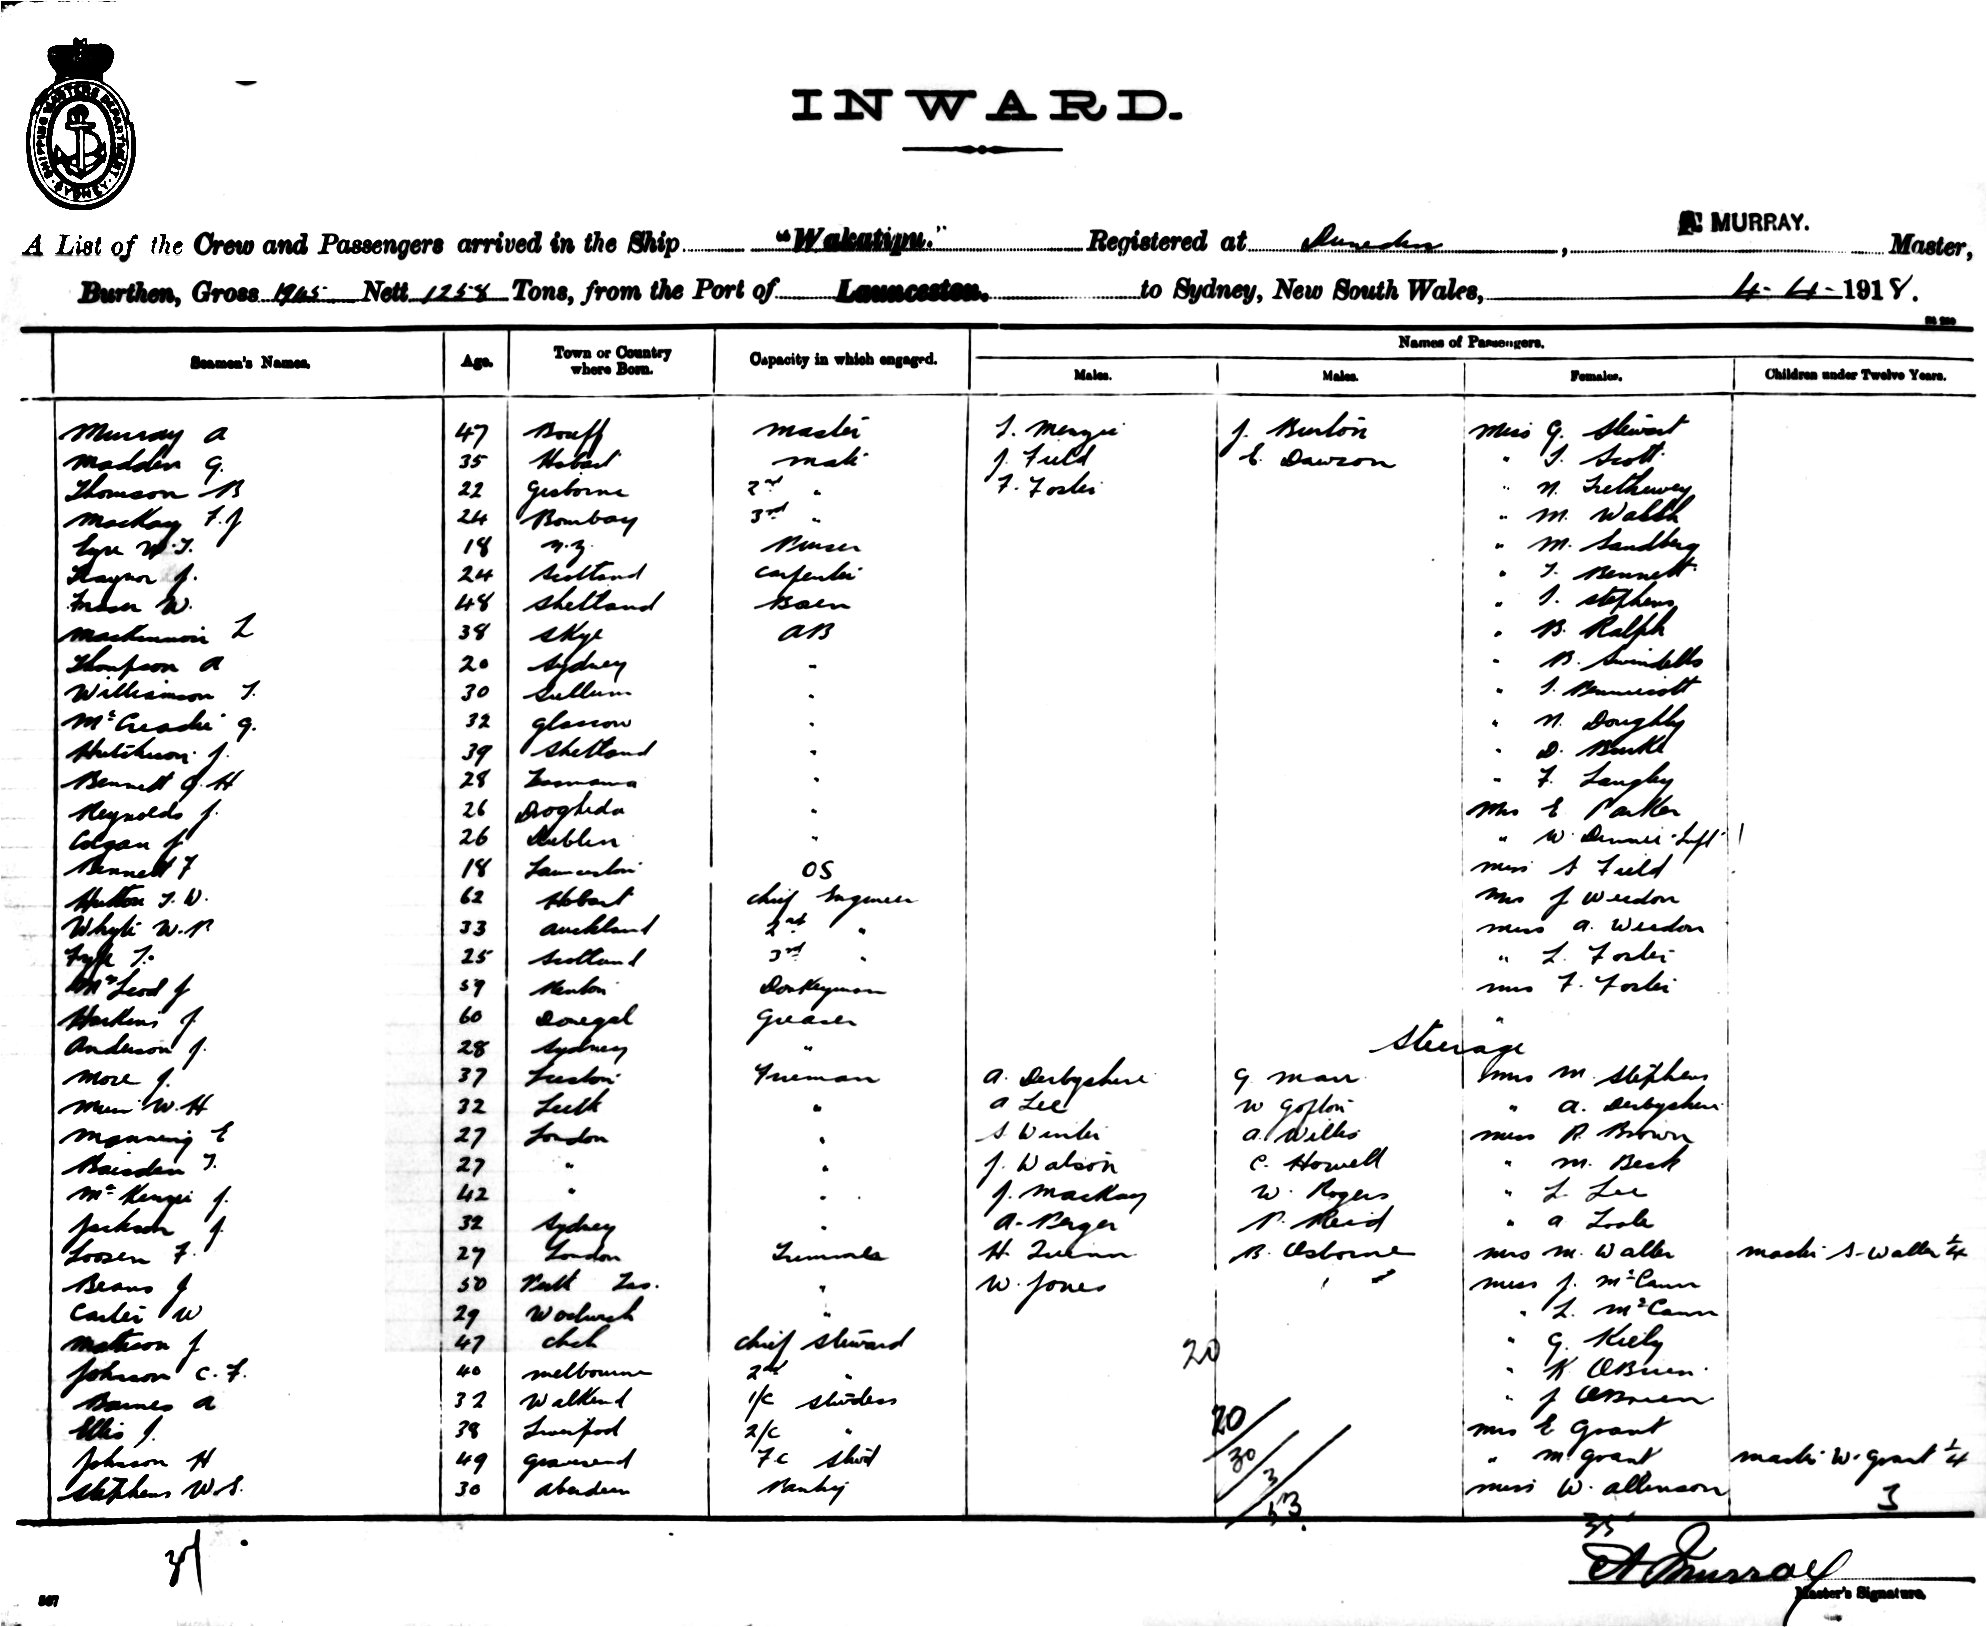 SHIPPING MASTERS DEPARTMENT SYDNEY
INWARD.
A List of the Crew and Passengers arrived in the Ship "Wakatipu." Registered at Dunedin, A. MURRAY. Master,
Burthen, Gross 1945 Nett 1258 Tons, from the Port of Launceston. to Sydney, New South Wales, 4-4-1918.
Seamen's Names. Age. Town or Country where Born. Capacity in which engaged. Names of Passengers.
Males. Males. Females. Children under Twelve Years.
Murray A 47 Banff Master T. Menzie J. Burton Miss G. Stewart
Madden G. 35 Hobart Mate J. Field E. Dawson " T. Scott
Thomson B 22 Gisborne 2nd " F. Foster " N. Trethewey
MacKay F. J 24 Bombay 3rd " " M. Walsh
Eyre W. T. 18 N.Z. Purser " M. Sandberg
Traynor J. 24 Scotland Carpenter " T. Bennett
Fraser W. 48 Shetland Bosn " S. Stephens
MacKinnon L 38 Skye AB " B. Ralph
Thompson A 20 Sydney " " B. Swindells
Williamson T. 30 " "
McCreadie G. 32 Glascow " " N. Doughty
Hutchison J. 39 Shetland " " D. Burke
Bennett G. H 28 Tasmania " " F. Langley
Reynolds J. 26 Drogheda " Mrs E Parker
Colgan J 26 Dublin " " W. Dennis
Bennett F 18 Launceston OS Miss S Field
Hutton T. W. 62 Hobart Chief Engineer Mrs J Weedon
Whyte W. P 33 Auckland 2nd " Miss A. Weedon
Fyfe T. 25 Scotland 3rd " " L. Foster
McLeod J 59 Renton Donkeyman Mrs F. Foster
Harkins J. 60 Donegal Greaser "
Anderson J. 28 Sydney " Steerage
More J. 37 Fireman A. Derbyshire G Marr Mrs M. Stephens
Muir W. H 32 Leith " A Lee W Gofton " A. Derbyshire
Manning E 27 London " S Winter A. Willis Miss R. Brown
Baisden T. 27 " " J. Watson C. Howell " M. Beck
McKenzie J. 42 " " J. MacKay W. Rogers " L. Lee
Jackson J. 32 Sydney " A. Berger P. Reid " A Toole
Loosen F. 27 London Trimmer H. Quinn B. Osborne Mrs M. Waller Master S. Waller 1/4
Beans J 50 Perth Tas. " W. Jones Miss J. McCann
Carter W 29 Woolwich " " L. McCann
Matheson J 47 Chch Chief Steward 20 " G. Kiely
Johnson C. F. 40 Melbourne 2nd " " K OBrien
Barnes A 32 Walkend 1/C Stewdess " J OBrien
Ellis J. 38 Liverpool 2/C " 20 Mrs E Grant
Johnson H 49 Gravesend F C Stwd 30 " M Grant Master W. Grant 1/4
Stephens W. S. 30 Aberdeen Pantry 3 Miss W. Allenson 3
53.
35
A Murray
Master's Signature.
567